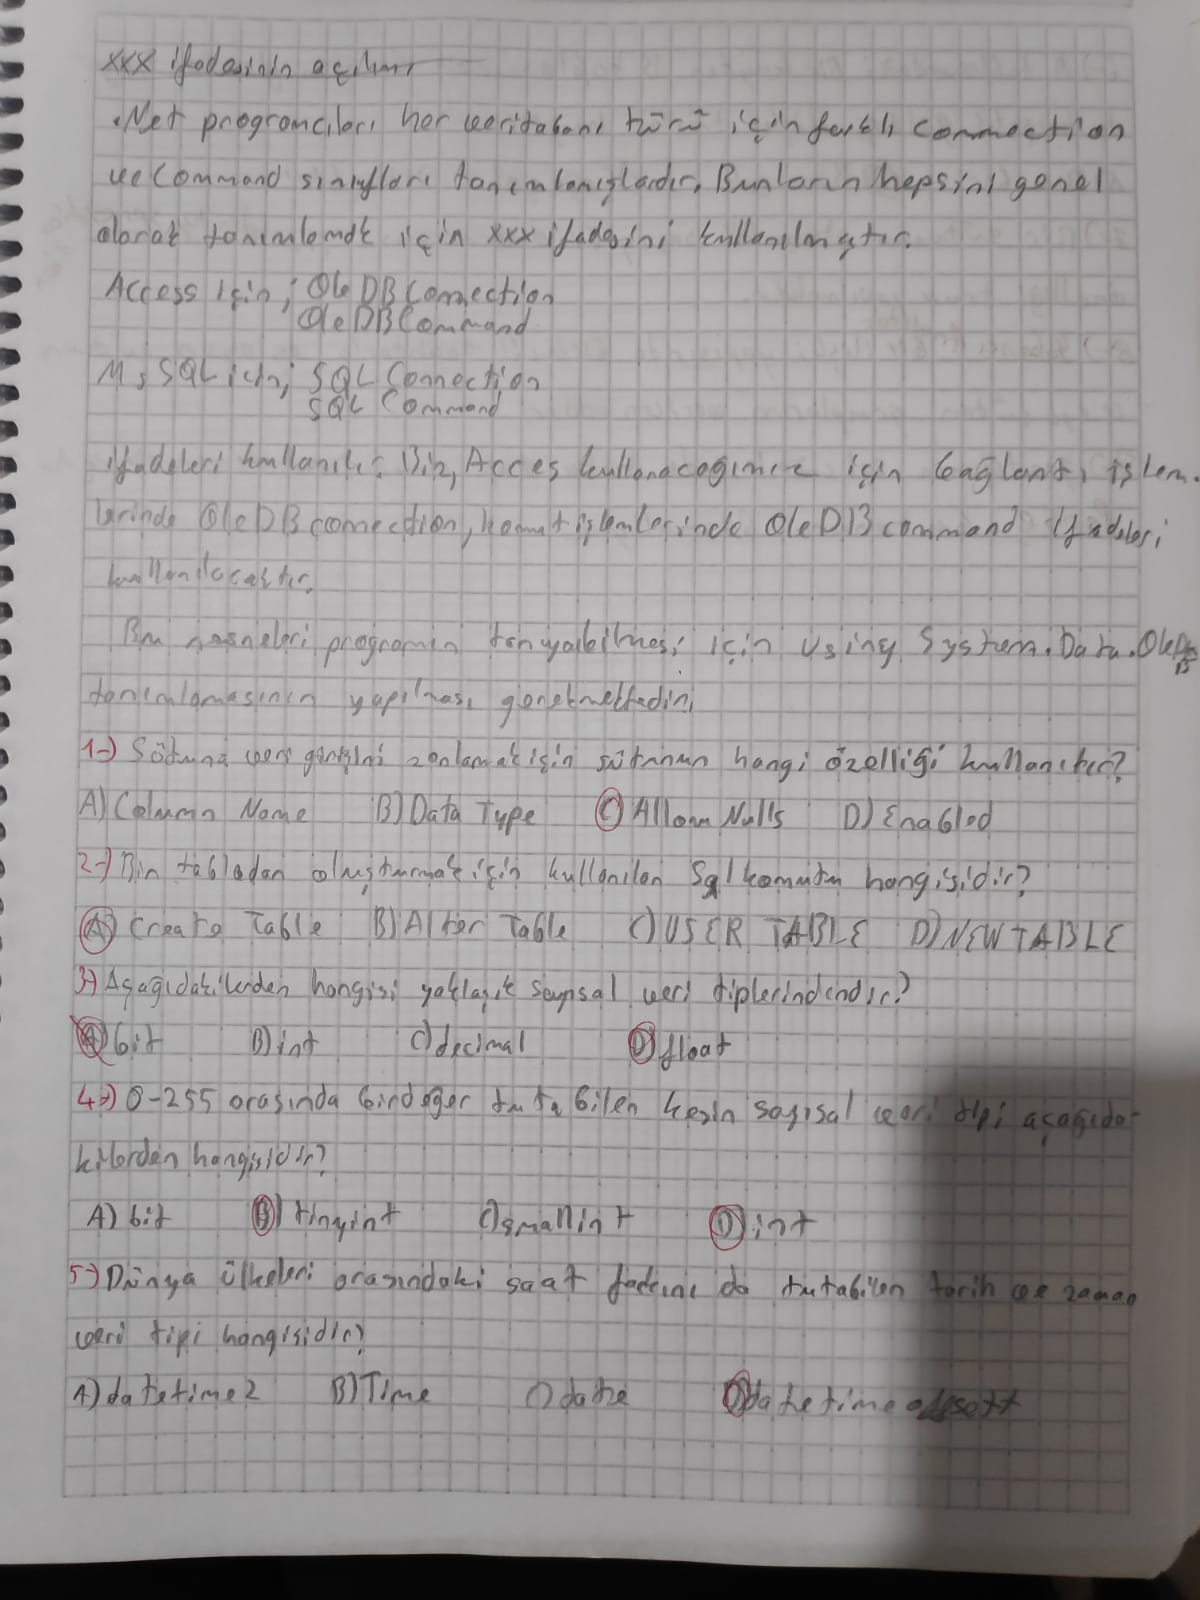 xxx ifadesinin açılımı
.Net programcıları her veritabanı türü için farklı connection
ve Command sınıfları tanımlamışlardır. Bunların hepsini genel
olarak tanımlamak için xxx ifadesini kullanılmıştır.
Access için; OleDBConnection
OleDBCommand
MsSQL için; SQL Connection
SQL Command
ifadeleri kullanılır. Biz, Acces kullanacağımız için bağlantı işlem-
lerinde OleDBconnection, komut işlemlerinde OleDBcommand ifadeleri
kullanılacaktır.
Bu nesneleri programın tanıyabilmesi için Using System.Data.OleDB
tanımlamasının yapılması gerekmektedir.
1-) Sütuna veri girişini zorlamak için sütunun hangi özelliği kullanılır?
A) Column Name B) Data Type C) Allow Nulls D) Enabled
2-) Bir tabladan oluşturmak için kullanılan Sql komutu hangisidir?
A) Create Table B) Alter Table C) USER TABLE D) NEW TABLE
3-) Aşağıdakilerden hangisi yaklaşık sayısal veri tiplerindendir?
A) bit B) int C) decimal D) float
4-) 0-255 arasında bir değer tutabilen kesin sayısal veri tipi aşağıda-
kilerden hangisidir?
A) bit B) tinyint C) smallint D) int
5-) Dünya ülkeleri arasındaki saat farkını da tutabilen tarih ve zaman
veri tipi hangisidir?
A) datetime2 B) Time C) date D) datetime offsett